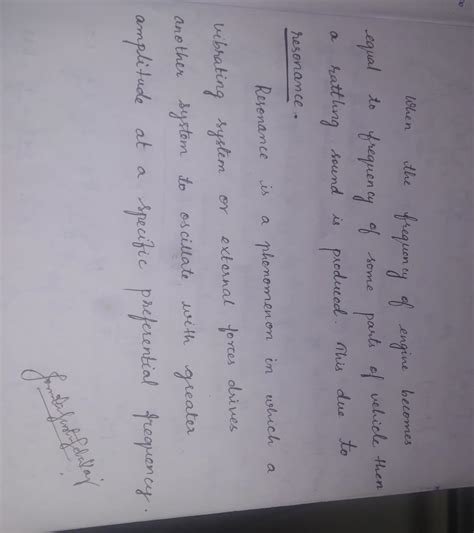 When the frequency of engine becomes
equal to frequency of some parts of vehicle then
a rattling sound is produced. This due to
resonance.
Resonance is a phonomenon in which a
vibrating system or external forces drives
another system to oscillate with greater
amplitude at a specific preferential frequency.